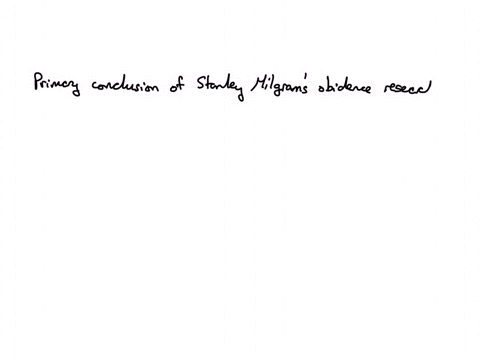 Primary conclusion of Stanley Milgram's obidence reseach